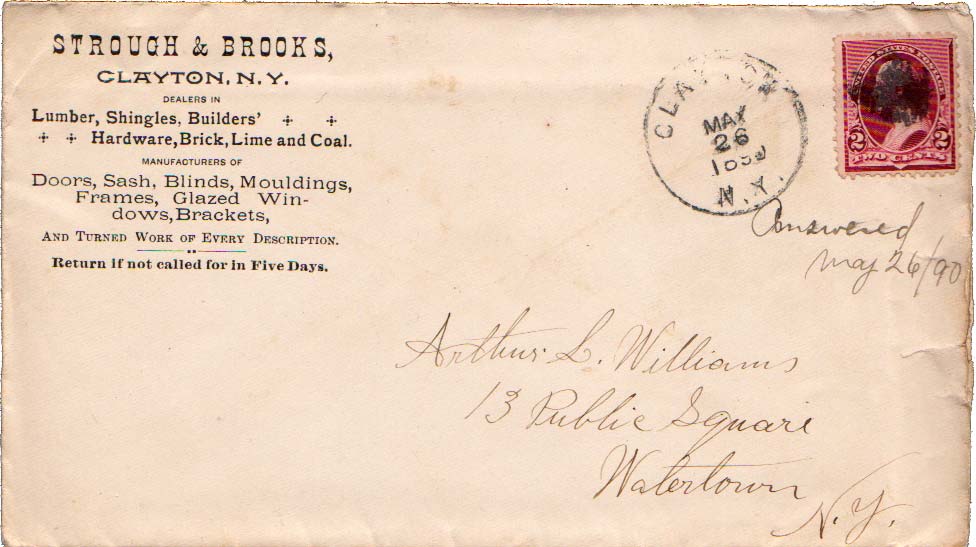 STROUGH & BROOKS,
CLAYTON, N.Y.
DEALERS IN
Lumber, Shingles, Builders'
Hardware, Brick, Lime and Coal.
MANUFACTURERS OF
Doors, Sash, Blinds, Mouldings,
Frames, Glazed Win-
dows, Brackets,
AND TURNED WORK OF EVERY DESCRIPTION.
Return if not called for in Five Days.
CLAYTON
MAY
26
N.Y.
UNITED STATES POSTAGE
2 2
TWO CENTS
Answered
May 26/90
Arthur L. Williams
13 Public Square
Watertown
N.Y.